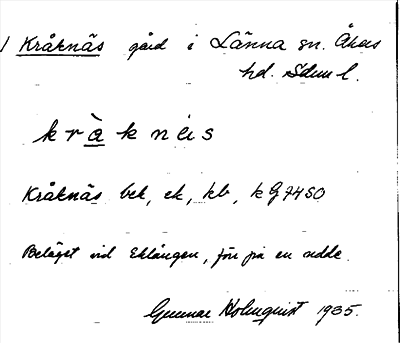 Kråknäs gård i Länna sn. Åkers
hd. Sdml.
kràknäs
Kråknäs bek, ek, kb, kG7450
Beläget vid Eklången, förr på en udde.
Gunnar Holmquist 1935.